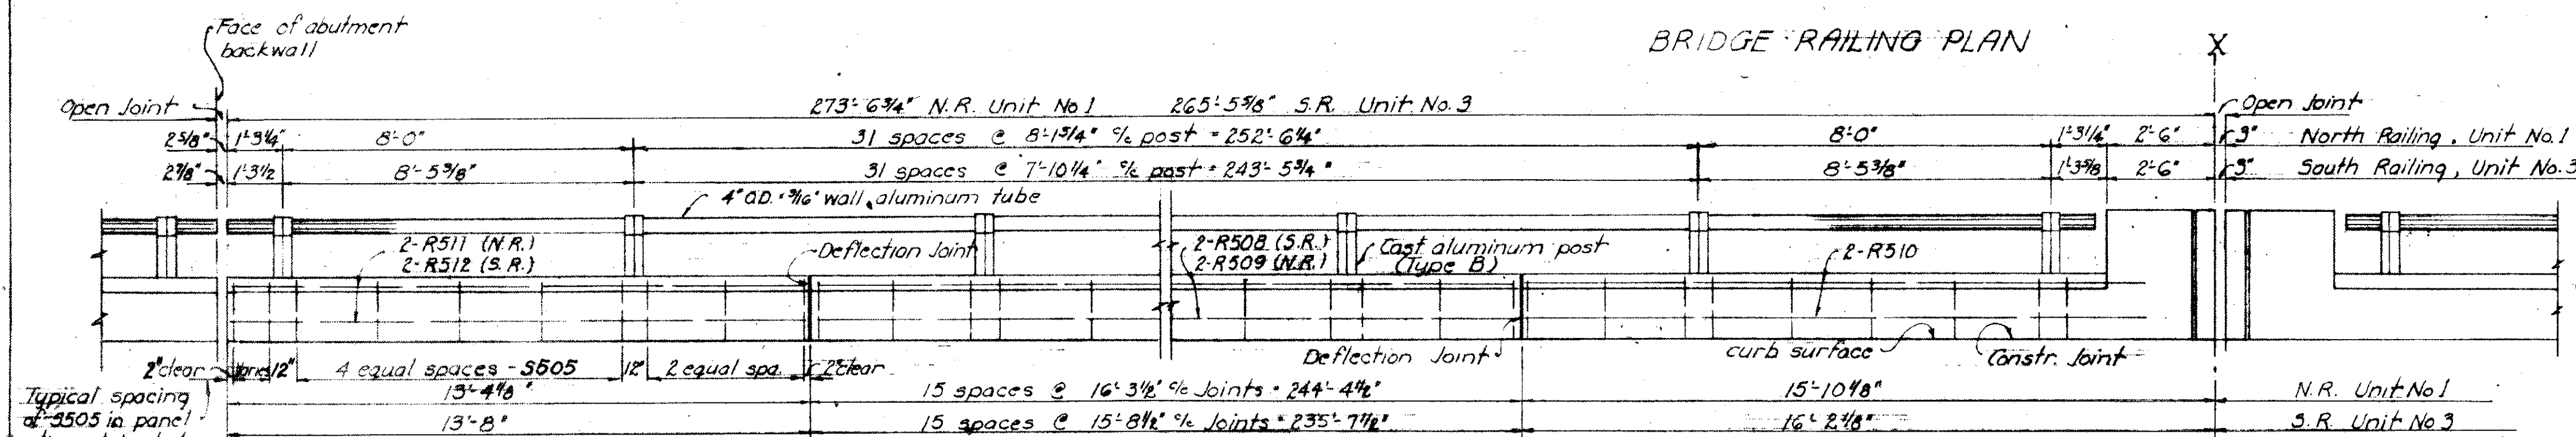 Face of abutment
backwall
BRIDGE RAILING PLAN
X
Open Joint
273'-6 3/4" N.R. Unit No 1 265'-5 5/8" S.R. Unit No. 3
Open Joint
2 5/8" 1'-3 1/4" 8'-0" 31 spaces @ 8'-1 3/4" c/c post = 252'-6 1/4" 8'-0" 1'-3 1/4" 2'-6" 3" North Railing, Unit No. 1
2 7/8" 1'-3 1/2 8'-5 3/8" 31 spaces @ 7'-10 1/4" c/c post = 243'-5 3/4" 8'-5 3/8" 1'-3 5/8 2'-6" 3" South Railing, Unit No. 3
4" O.D. x 3/16" wall, aluminum tube
2-R511 (N.R.)
2-R512 (S.R.)
Deflection Joint
2-R508 (S.R.)
2-R509 (N.R.)
Cast aluminum post
(Type B)
2-R510
Deflection Joint
curb surface
Constr. Joint
2" clear varies 12" 4 equal spaces - S505 12" 2 equal spa. 2" clear
Typical spacing
of S505 in panel
13'-4 1/8" 15 spaces @ 16'-3 1/2" c/c Joints = 244'-4 1/2" 15'-10 1/8" N.R. Unit No 1
13'-8" 15 spaces @ 15'-8 1/2" c/c Joints = 235'-7 1/2" 16'-2 1/8" S.R. Unit No 3